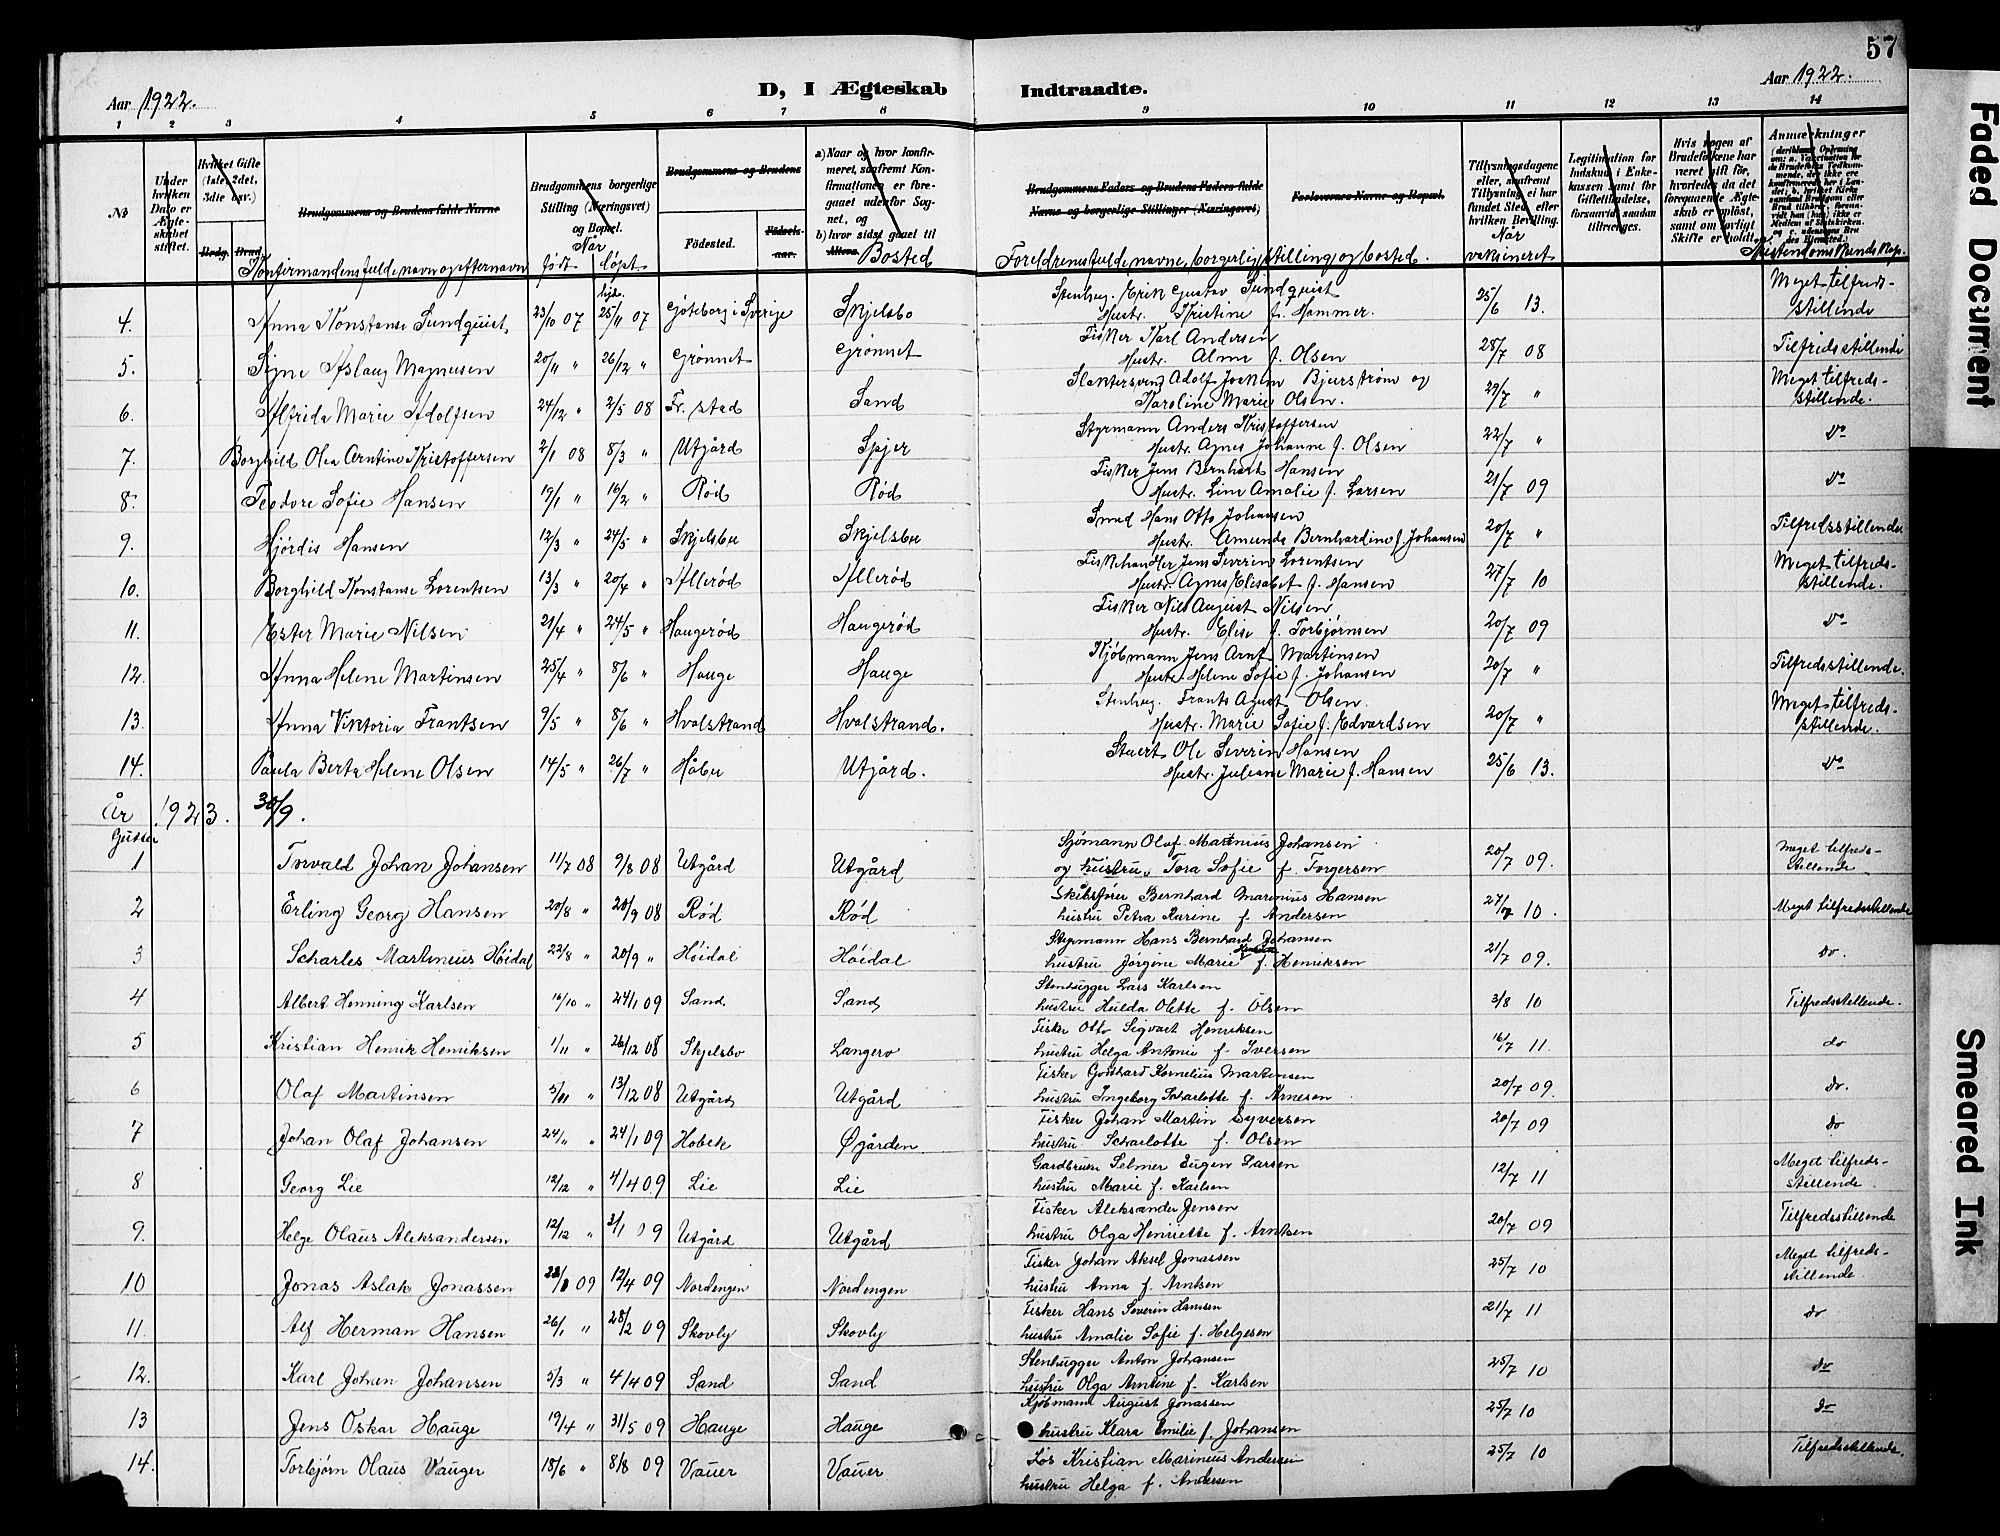 57
Aar 1922.
D, I Ægteskab Indtraadte.
Aar 1922.
1 2 3 4 5 6 7 8 9 10 11 12 13 14
No
Under hvilken Dato er Ægteskabet stiftet.
Hvilket Gifte (1ste, 2det, 3die osv.)
Brdg. Brud.
Brudgommens og Brudens fulde Navne
Konfirmandens fulde navn og efternavn
Brudgommens borgerlige Stilling (Næringsvei) og Bopæl.
Når født løpt
Brudgommens og Brudens
Fødested. Fødselsaar.
a) Naar og hvor konfirmeret, saafremt Konfirmationen er foregaaet udenfor Sognet, og
b) hvor sidst gaaet til Alters.
Bosted
Brudgommens Faders og Brudens Faders fulde Navne og borgerlige Stillinger (Næringsvei)
Forlovernes Navne og Bopæl.
Foreldrenes fulde navne, borgerlig stilling og bosted.
Tillysningsdagene eller, saafremt Tillysning ei har fundet Sted, efter hvilken Bevilling.
Når vaksineret
Legitimation for Indskud i Enkekassen samt for Giftetilladelse, forsaavidt saadan tiltrænges.
Hvis nogen af Brudefolkene har været gift før, hvorledes da det foregaaende Ægteskab er opløst, samt om lovligt Skifte er holdt.
Anmærkninger
Kristendoms Kundskap.
4. Anna Konstanse Sundquist, 23/10 07 hjde. 25/11 07 Göteborg i Sverige Skjelsbo Stenhug. Erik Gustav Sundquist
Hustr. Kristine f. Hammer. 25/6 13. Meget tilfredsstillende
5. Signe Aslaug Magnusen 20/11 " 26/12 " Grønnet Grønnet Fisker Karl Andersen
Hustr. Alma f. Olsen 28/7 08 Tilfredsstillende
6. Alfrida Marie Adolfsen 24/12 " 2/5 08 Fr. stad Sand Slaktersvend Adolf Joakim Bjurstrøm og
Karoline Marie Olsen. 29/7 " Meget tilfredsstillende.
7. Borghild Olea Arntine Kristoffersen 2/1 08 8/3 " Utgård Spjer Styrmann Anders Kristoffersen
Hustr. Agnes Johanne f. Olsen 22/7 " Do
8. Teodore Sofie Hansen 19/1 " 16/2 " Rød Rød Fisker Jens Bernhart Hansen
Hustr. Lina Amalie f. Larsen 21/7 09 Do
9. Hjørdis Hansen 12/3 " 24/5 " Skjelsbu Skjelsbu Smed Hans Otto Johansen
Hustr. Amunda Bernhardine f. Johansen 20/7 " Tilfredsstillende
10. Borghild Konstanse Lorentsen 13/3 " 20/4 " Allerød Allerød Fiskehandler Jens Severin Lorentsen
Hustr. Agnes Elisabet f. Hansen 27/7 10 Meget tilfredsstillende.
11. Ester Marie Nilsen 21/4 " 24/5 " Haugerød Haugerød Fisker Nils August Nilsen
Hustr. Elise f. Torbjørnsen 20/7 09 Do
12. Anna Helene Martinsen 25/4 " 8/6 " Hauge Hauge Kjøbmann Jens Arnt Martinsen
Hustr. Helene Sofie f. Johansen 20/7 " Tilfredsstillende.
13. Anna Viktoria Frantsen 9/5 " 8/6 " Hvalstrand Hvalstrand. Stenhug. Frants Agust Olsen
Hustr. Marie Sofie f. Edvardsen 20/7 " Meget tilfredsstillende.
14. Paula Berta Helene Olsen 14/5 " 26/7 " Håbu Utgård. Stuert Ole Severin Hansen
Hustr. Juliane Marie f. Hansen 25/6 13. Do
År 1923. 30/9.
Gutter
1 Torvald Johan Johansen 11/7 08 9/8 08 Utgård Utgård Sjømann Olaf Martinius Johansen
og hustru, Tora Sofie f. Torgersen 20/7 09. Meget tilfredsstillende
2 Erling Georg Hansen 20/8 " 20/9 08 Rød Rød Skibsfører Bernhard Marinius Hansen
hustru Petra Karine f. Andersen 27/7 10. Meget tilfredsstillende
3 Scharles Martinius Høidal 22/8 " 20/9 " Høidal Høidal Styrmann Hans Bernhard Johansen
hustru Jørgine Marie f. Henriksen 21/7 09. Do.
4 Albert Henning Karlsen 16/10 " 24/1 09 Sand Sand Stenhugger Lars Karlsen
hustru Hulda Olette f. Olsen 3/8 10 Tilfredsstillende.
5 Kristian Henrik Henriksen 1/11 " 26/12 08 Skjelsbo Langerø Fisker Otto Sigvart Henriksen
hustru Helga Antonie f. Iversen 16/7 11 do
6 Olaf Martinsen 5/11 " 13/12 08 Utgård Utgård Fisker Gotthard Kornelius Martinsen
hustru Ingeborg Scharlotte f. Arnesen 20/7 09. do.
7 Johan Olaf Johansen 24/11 " 24/1 09 Hobek Øgården Fisker Johan Martin Syversen
hustru Scharlotte f. Olsen 20/7 09 do
8 Georg Lie 12/12 " 4/4 09 Lie Lie Gardbruker Selmer Eugen Larsen
hustru Marie f. Karlsen 12/7 11 Meget tilfredsstillende
9. Helge Olaus Aleksandersen 12/12 " 3/1 09 Utgård Utgård Fisker Aleksander Jensen
hustru Olga Henriette f. Arntsen 20/7 09 Tilfredsstillende
10 Jonas Aslak Jonassen 28/1 09 12/4 09 Nordengen Nordengen Fisker Johan Aksel Jonassen
hustru Anna f. Arntsen 25/7 10 Meget tilfredsstillende
11. Alf Herman Hansen 26/1 " 28/2 09 Skovly Skovly Fisker Hans Severin Hansen
hustru Amalie Sofie f. Helgesen 21/7 11 do
12. Karl Johan Johansen 5/3 " 4/4 09 Sand Sand Stenhugger Anton Johansen
hustru Olga Arntine f. Karlsen 25/7 10 do
13 Jens Oskar Hauge 19/4 " 31/5 09 Hauge Hauge Kjøbmann August Jonassen
hustru Klara Emilie f. Johansen 25/7 10 do
14. Torbjørn Olaus Vauger 18/6 " 8/8 09 Vauer Vauer Los Kristian Marinius Andersen
hustru Helga f. Andersen 25/7 10 Tilfredsstillende.
Faded Document
Smeared Ink